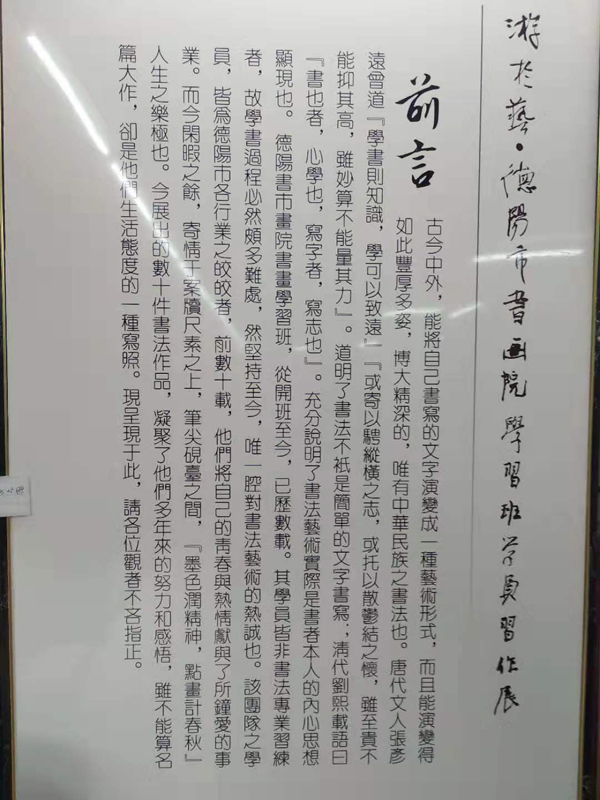 游於藝·德陽市書画院學習班学員習作展
前言
古今中外，能將自己書寫的文字演變成一種藝術形式，而且能演變得
如此豐厚多姿，博大精深的，唯有中華民族之書法也。唐代文人張彥
遠曾道『學書則知識，學可以致遠』『或寄以騁縱橫之志，或托以散鬱結之懷，雖至貴不
能抑其高，雖妙算不能量其力』。道明了書法不祇是簡單的文字書寫；清代劉熙載語曰
『書也者，心學也，寫字者，寫志也』。充分說明了書法藝術實際是書者本人的內心思想
顯現也。德陽書市畫院書畫學習班，從開班至今，已歷數載。其學員皆非書法專業習練
者，故學書過程必然頗多難處，然堅持至今，唯一腔對書法藝術的熱誠也。該團隊之學
員，皆為德陽市各行業之皎皎者，前數十載，他們將自己的青春與熱情獻與了所鐘愛的事
業。而今閑暇之餘，寄情于案牘尺素之上，筆尖硯臺之間，『墨色潤精神，點畫計春秋』
人生之樂極也。今展出的數十件書法作品，凝聚了他們多年來的努力和感悟，雖不能算名
篇大作，卻是他們生活態度的一種寫照。現呈現于此，請各位觀者不吝指正。